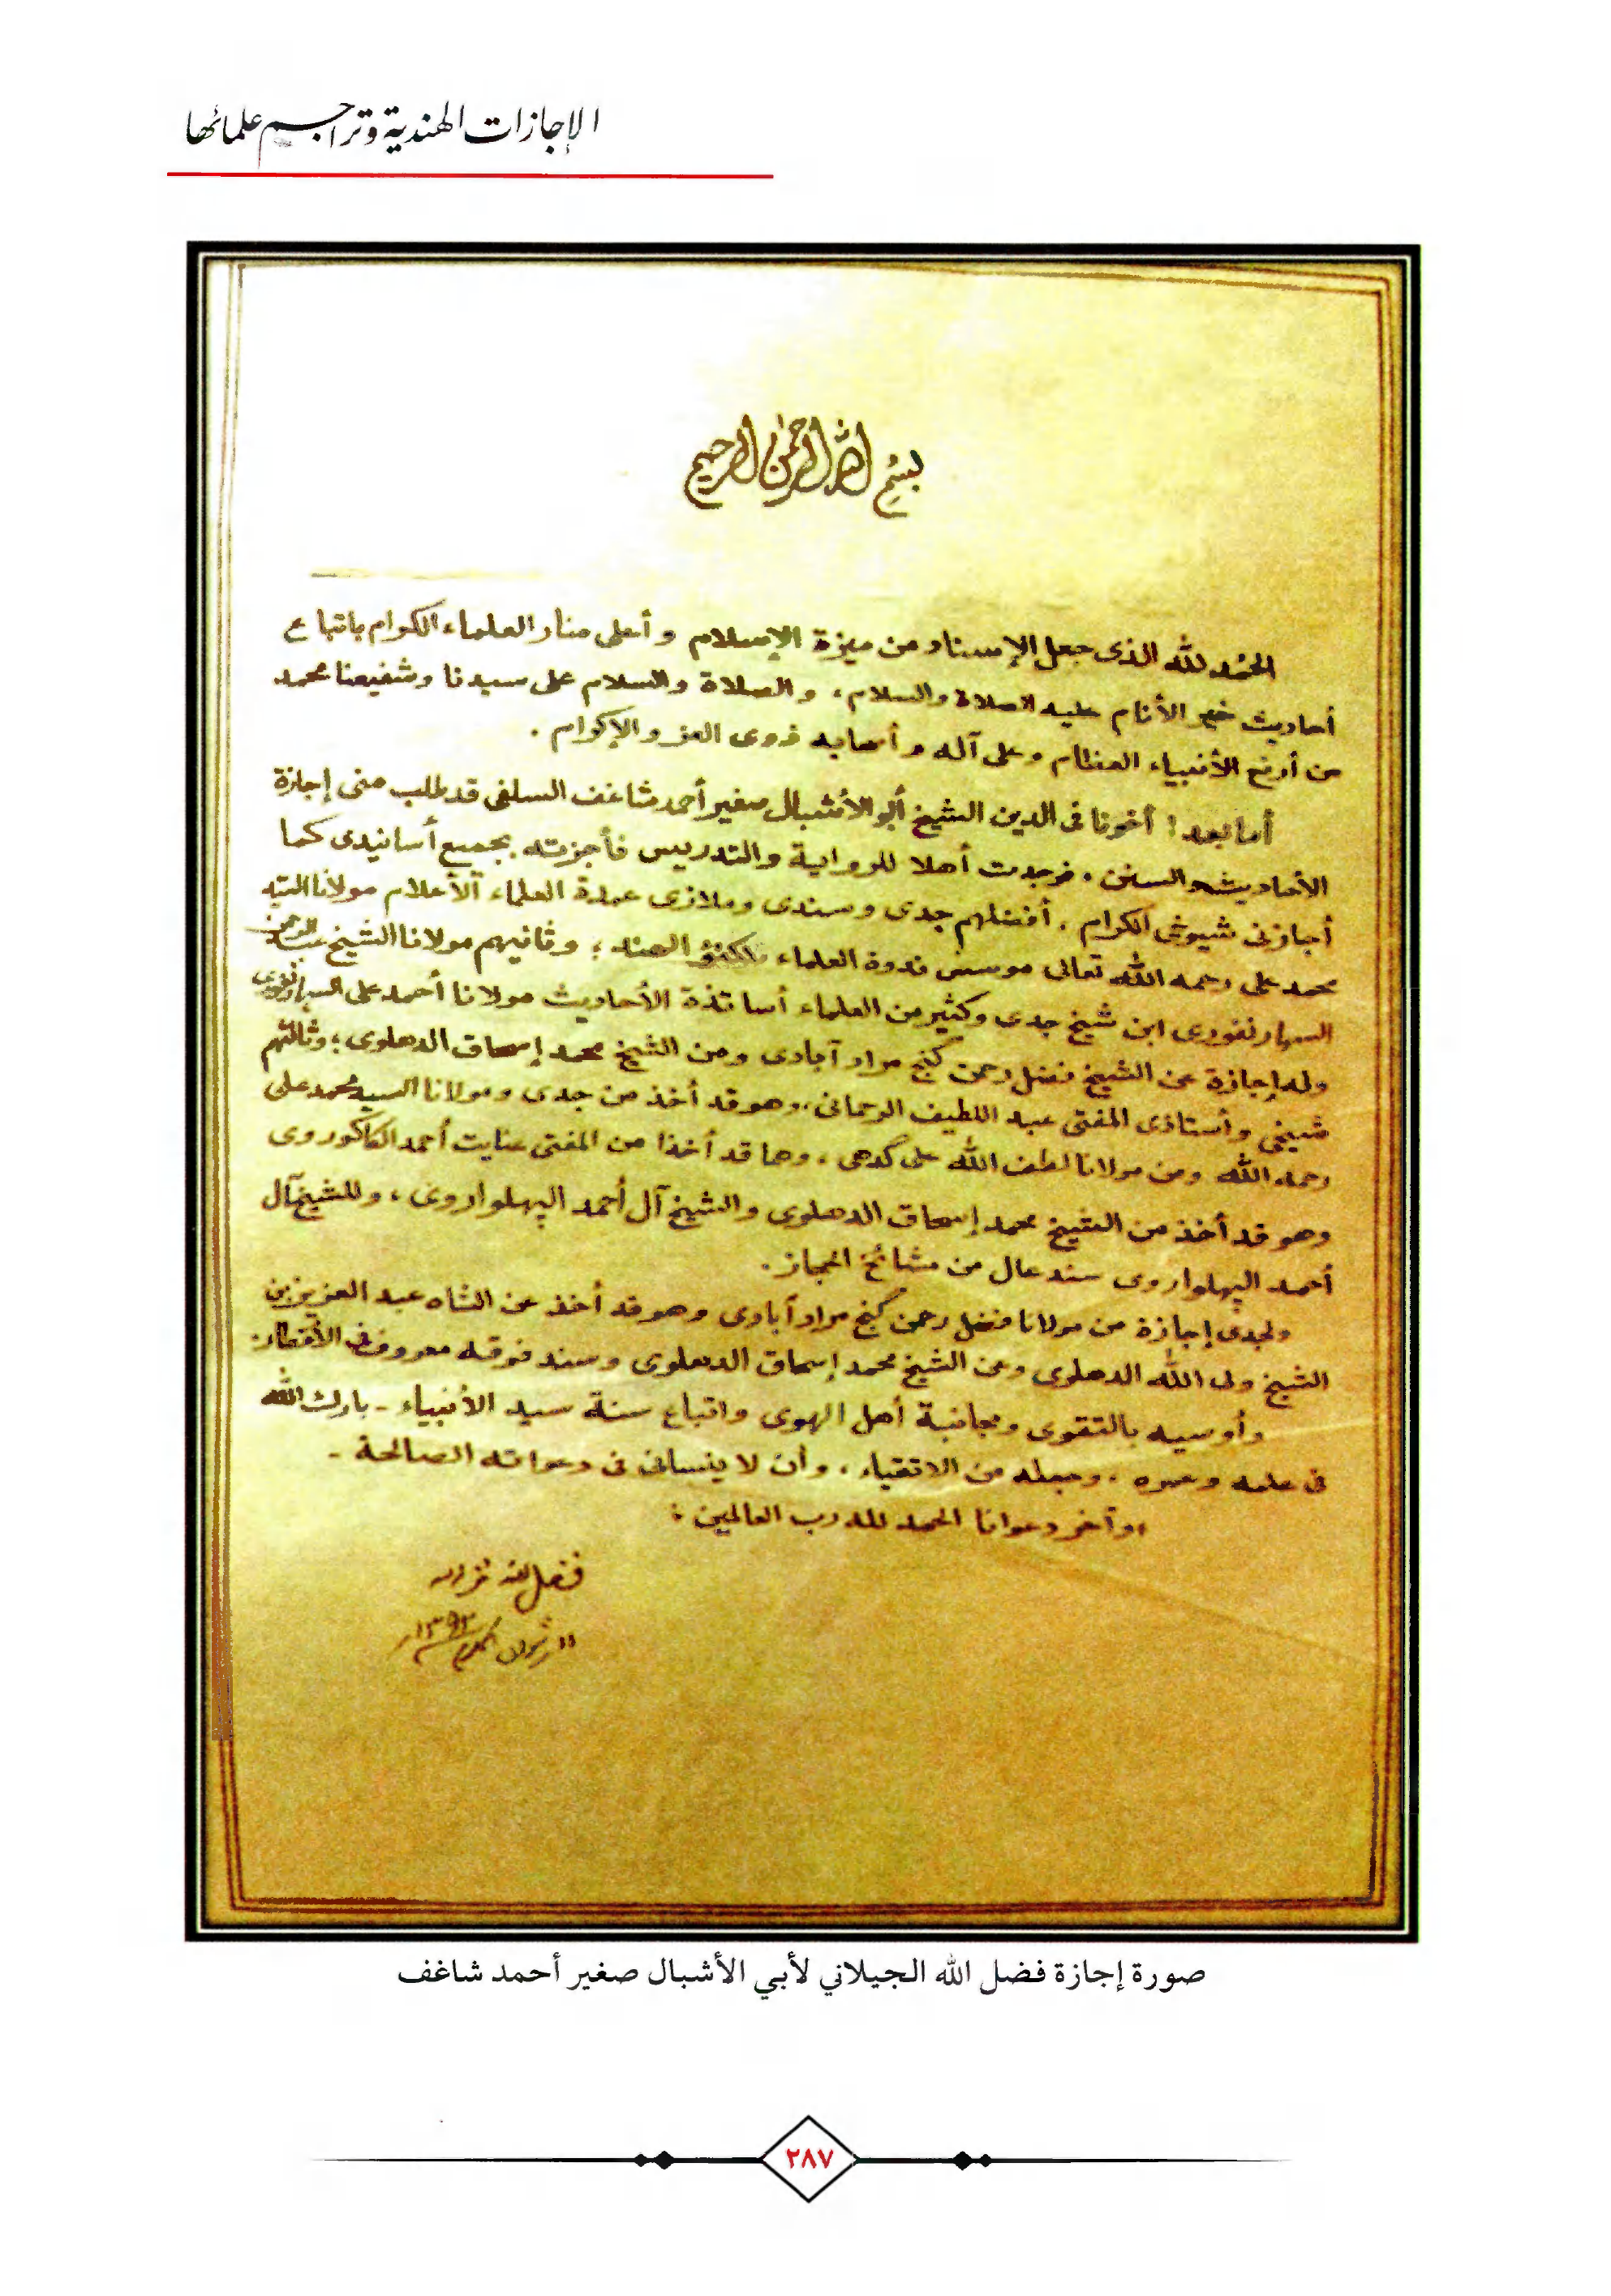 الإجازات الهندية وتراجم علمائها
بسم الله الرحمن الرحيم
الحمد لله الذى جعل الإسناد من ميزة الإسلام وأعلى منار العلماء الكرام باتباع
أحاديث خير الأنام عليه الصلاة والسلام، والصلاة والسلام على سيدنا وشفيعنا محمد
من أرفع الأنبياء العظام وعلى آله وأصحابه ذوى العز والإكرام.
أما بعد! أخونا فى الدين الشيخ أبو الأشبال صغير أحمد شاغف السلفى قد طلب منى إجازة
الأحاديث والسنن، فوجدت أهلا للرواية والتدريس فأجزته بجميع أسانيدى كما
أجازنى شيوخى الكرام، أفضلهم جدى وسندى وملاذى عمدة العلماء الأعلام مولانا السيد
محمد على رحمه الله تعالى موسس ندوة العلماء لكنؤ الهند؛ وثانيهم مولانا الشيخ عبد الرحمن
السهارنفورى ابن شيخ جدى وكثير من العلماء أساتذة الأحاديث مولانا أحمد على السهارنفورى
وله إجازة عن الشيخ فضل رحمن گنج مراد آبادى ومن الشيخ محمد إسحاق الدهلوى؛ وثالثهم
شيخى وأستاذى المفتى عبد اللطيف الرحمانى، وهو قد أخذ من جدى ومولانا السيد محمد على
رحمه الله ومن مولانا لطف الله على گدهى، وهما قد أخذا من المفتى عنايت أحمد الكاكوروى
وهو قد أخذ من الشيخ محمد إسحاق الدهلوى والشيخ آل أحمد الپهلواروى، وللشيخ آل
أحمد الپهلواروى سند عال من مشائخ الحجاز.
ولجدى إجازة من مولانا فضل رحمن گنج مراد آبادى وهو قد أخذ عن الشاه عبد العزيز بن
الشيخ ولى الله الدهلوى وعن الشيخ محمد إسحاق الدهلوى وسند فوقه معروف فى الأقطار.
وأوسيه بالتقوى ومجانبة أهل الهوى واتباع سنة سيد الأنبياء - بارك الله
فى علمه وعمره، وجعله من الاتقياء، وأن لا ينسانى فى دعواته الصالحة -
وآخر دعوانا الحمد لله رب العالمين:
فضل الله
١١ شوال المكرم ١٣٩٣
صورة إجازة فضل الله الجيلاني لأبي الأشبال صغير أحمد شاغف
٢٨٧